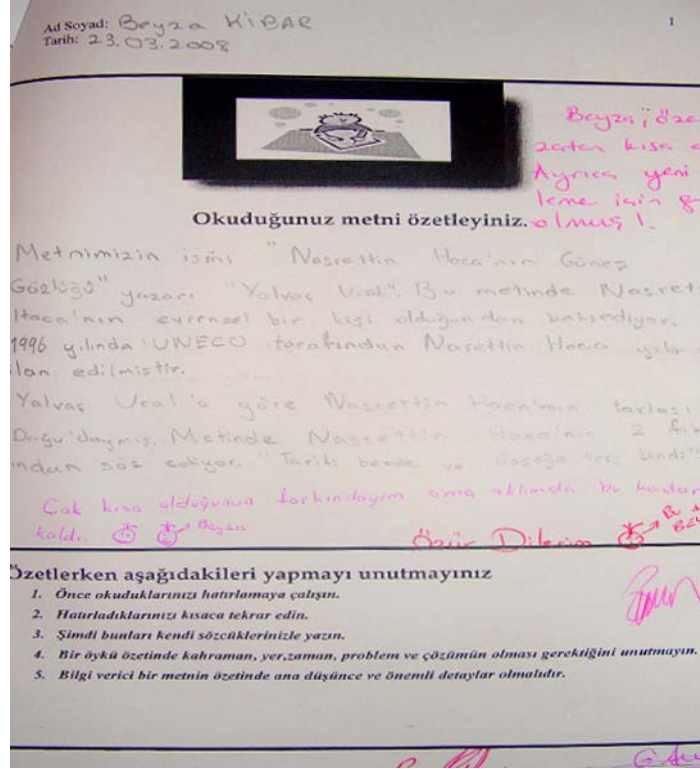 Ad Soyad: Beyza KİBAR
1
Tarih: 23.03.2008
Beyza, öze
zaten kısa o
Ayrıca, yeni
leme için g
olmuş !.
Okuduğunuz metni özetleyiniz.
Metnimizin ismi " Nasrettin Hoca'nın Güneş
Gözlüğü" yazarı "Yalvaç Ural". Bu metinde Nasret
Hoca'nın evrensel bir kişi olduğundan bahsediyor.
1996 yılında UNECO tarafından Narettin Hoca yılı
ilan edilmiştir.
Yalvaç Ural'a göre Nasrettin Hoca'nın tarlası
Dagu'daymış. Metinde Nasrettin Hoca'nın 2 fık
ından söz ediyor. "Tarihi bende ve eşeğe ters bindi"
Çok kısa olduğunun farkındayım ama aklımda bu kadar
kaldı. Beyza
Özür Dilerim Bu
Özetlerken aşağıdakileri yapmayı unutmayınız
1. Önce okuduklarınızı hatırlamaya çalışın.
2. Hatırladıklarınızı kısaca tekrar edin.
3. Şimdi bunları kendi sözcüklerinizle yazın.
4. Bir öykü özetinde kahraman, yer,zaman, problem ve çözümün olması gerektiğini unutmayın.
5. Bilgi verici bir metnin özetinde ana düşünce ve önemli detaylar olmalıdır.